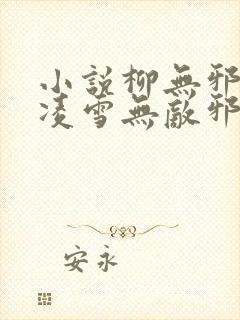 小說柳無邪
凌雪無敵邪
安永